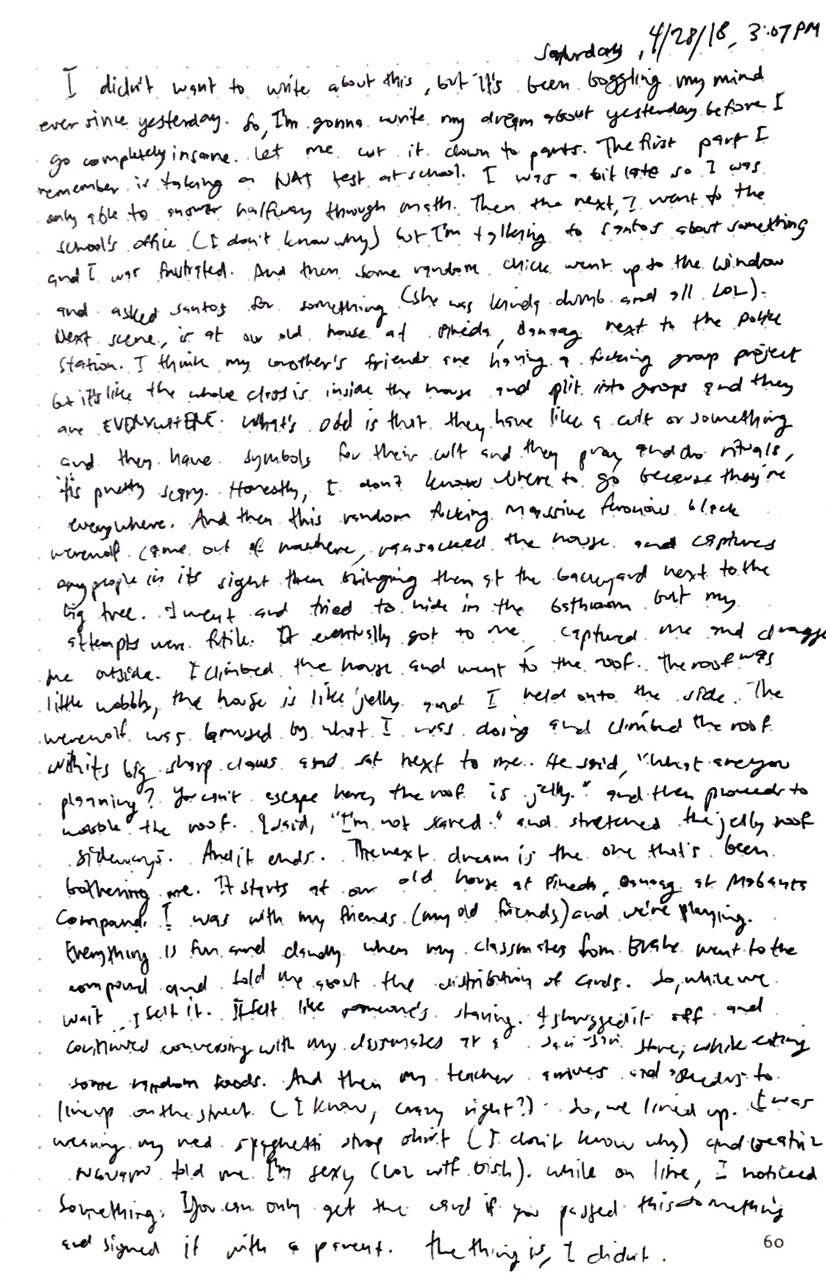 Saturday, 4/28/18, 3:07PM
I didn't want to write about this, but it's been boggling my mind
ever since yesterday. So, I'm gonna write my dream about yesterday before I
go completely insane. Let me cut it down to parts. The first part I
remember is taking a NAT test at school. I was a bit late so I was
only able to answer halfway through math. Then the next, I went to the
school's office (I don't know why) but I'm talking to Santos about something
and I was frustrated. And then some random chick went up to the window
and asked Santos for something (she was kinda dumb and all LOL).
Next scene, is at our old house at Pineda, next to the police
station. I think my brother's friends are having a fucking group project
but it's like the whole class is inside the house and split into groups and they
are EVERYWHERE. What's odd is that they have like a cult or something
and they have symbols for their cult and they pray and do rituals,
it's pretty scary. Honestly, I don't know where to go because they're
everywhere. And then this random fucking massive ferocious black
werewolf came out of nowhere, ransacked the house and captures
any people in its sight then bringing them at the backyard next to the
big tree. I went and tried to hide in the bathroom but my
attempts were futile. It eventually got to me, captured me and dragge
me outside. I climbed the house and went to the roof. The roof was
little wobbly, the house is like jelly and I held onto the side. The
werewolf was bemused by what I was doing and climbed the roof
with its big sharp claws and sat next to me. He said, "What are you
planning? You can't escape here, the roof is jelly." and then proceeds to
wobble the roof. I said, "I'm not scared." and stretched the jelly roof
sideways. And it ends. The next dream is the one that's been
bothering me. It starts at our old house at Pineda, at
Compound. I was with my friends (my old friends) and we're playing.
Everything is fun and dandy when my classmates from went to the
compound and told me about the distribution of cards. So, while we
wait, I felt it. It felt like someone's staring. I shrugged it off and
continued conversing with my classmates at a sari-sari store, while eating
some random foods. And then my teacher arrives and to
line up on the street (I know, crazy right?). So, we lined up. I was
wearing my red spaghetti strap shirt (I don't know why) and Beatriz
Navarro told me I'm sexy (LOL wtf bish). While on line, I noticed
something. You can only get the card if you passed this something
and signed it with a parent. The thing is, I didn't.
60